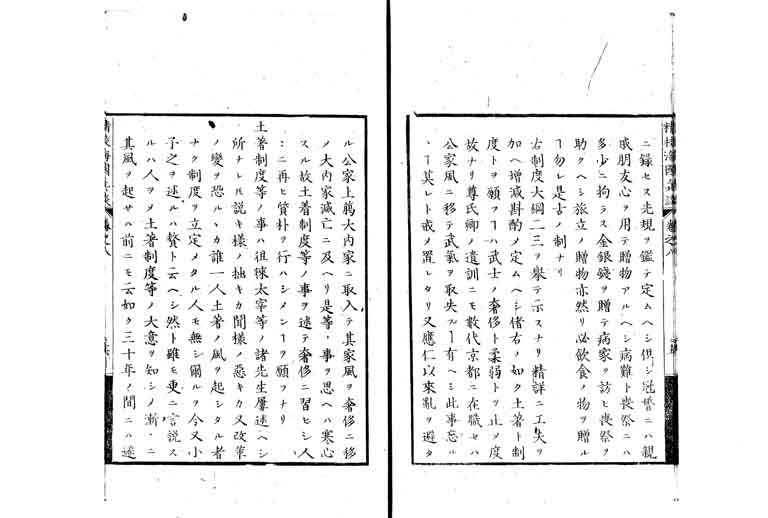 ニ録セス先規ヲ鑑テ定ムヘシ但シ冠婚ニハ親
戚朋友心ヲ用テ贈物アルヘシ病難ト喪祭ニハ
多少ニ拘ラス金銀錢ヲ贈テ病家ヲ訪ヒ喪祭ヲ
助クヘシ旅立ノ贈物亦然リ必飲食ノ物ヲ贈ル
ヿ勿レ是古ノ制ナリ
右制度大綱二三ヲ擧テ示スナリ精詳ニ工夫ヲ
加ヘ増減斟酌〆定ムヘシ偖右ノ如ク土著ト制
度トヲ願フヿハ武士ノ奢侈ト柔弱トヲ止メ度
故ナリ尊氏卿ノ遺訓ニモ數代京都ニ在職セハ
公家風ニ移テ武氣ヲ取失フヿ有ヘシ此事忘ル
ヿ莫レト戒メ置レタリ又應仁以來亂ヲ避タ
ル公家上﨟大内家ニ取入テ其家風ヲ奢侈ニ移
ノ大内家滅亡ニ及ヘリ是等ノ事ヲ思ヘハ寒心
スル故土着制度等ノ事ヲ述テ奢侈ニ習ヒシ人
ニ再ヒ質朴ヲ行ハシメンヿヲ願フナリ
土著制度等ノ事ハ徂徠太宰等ノ諸先生屢述ヘシ
所ナレ𪜈説キ様ノ拙キカ聞様ノ惡キカ又改革
ノ變ヲ恐ルヽカ誰一人土著ノ風ヲ起シタル者
ナク制度ヲ立定メタル人モ無シ爾ルヲ今又小
子之ヲ述ルハ贅ト云ヘシ然ト雖モ更ニ言説ス
ルハ人ヲ〆土著制度等ノ大意ヲ知シメ漸々ニ
其風ヲ起サハ前ニモ云如ク三十年ノ間ニハ遂